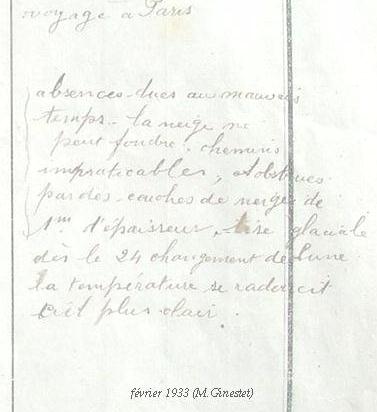 voyage à Paris
absences dues au mauvais
temps. la neige ne
peut fondre. chemins
impraticables, obstrués
par des couches de neige de
1m d'épaisseur, bise glaciale
dès le 24 changement de lune
la température se radoucit
ciel plus clair.
février 1933 (M. Ginestet)